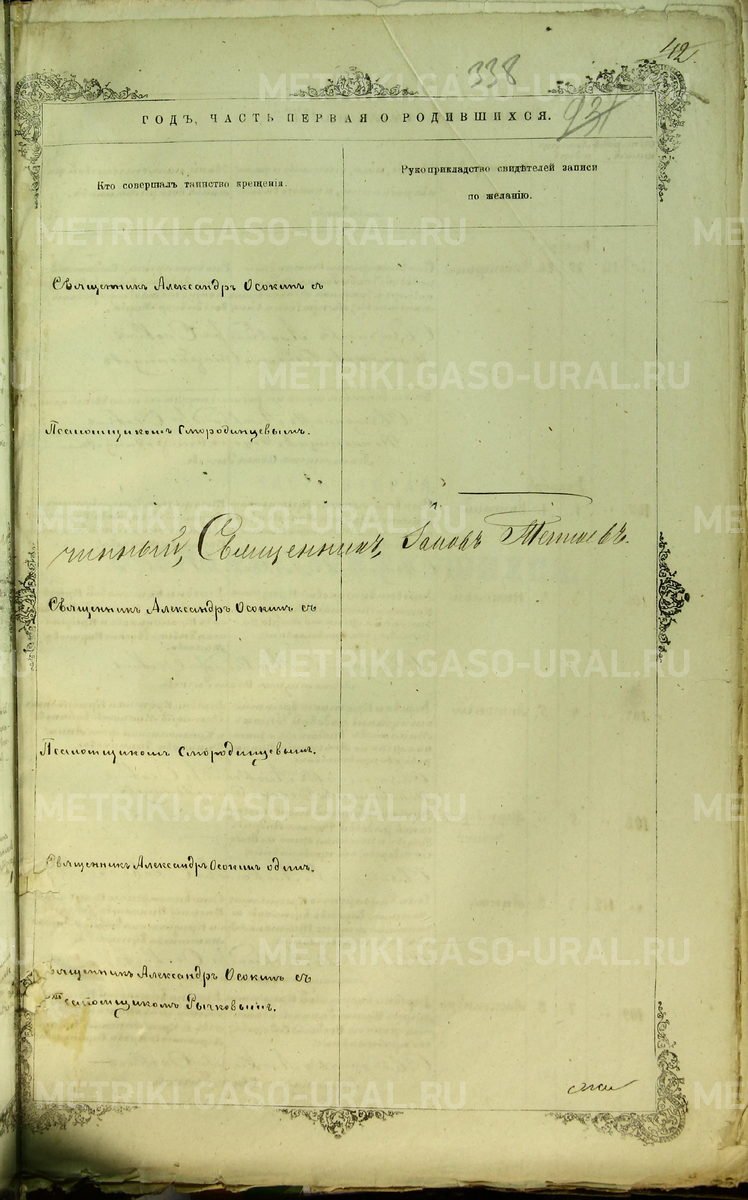 42.
338
931
ГОДЪ, ЧАСТЬ ПЕРВАЯ О РОДИВШИХСЯ.
Кто совершалъ таинство крещенія.
Рукоприкладство свидѣтелей записи
по желанію.
Священникъ Александръ Осокинъ съ
Псаломщикомъ Смородинцевымъ.
чинный, Священникъ,
Священникъ Александръ Осокинъ съ
Псаломщикомъ Смородинцевымъ.
Священникъ Александръ Осокинъ одинъ.
Священникъ Александръ Осокинъ съ
Псаломщикомъ Рычковымъ.
METRIKI.GASO-URAL.RU